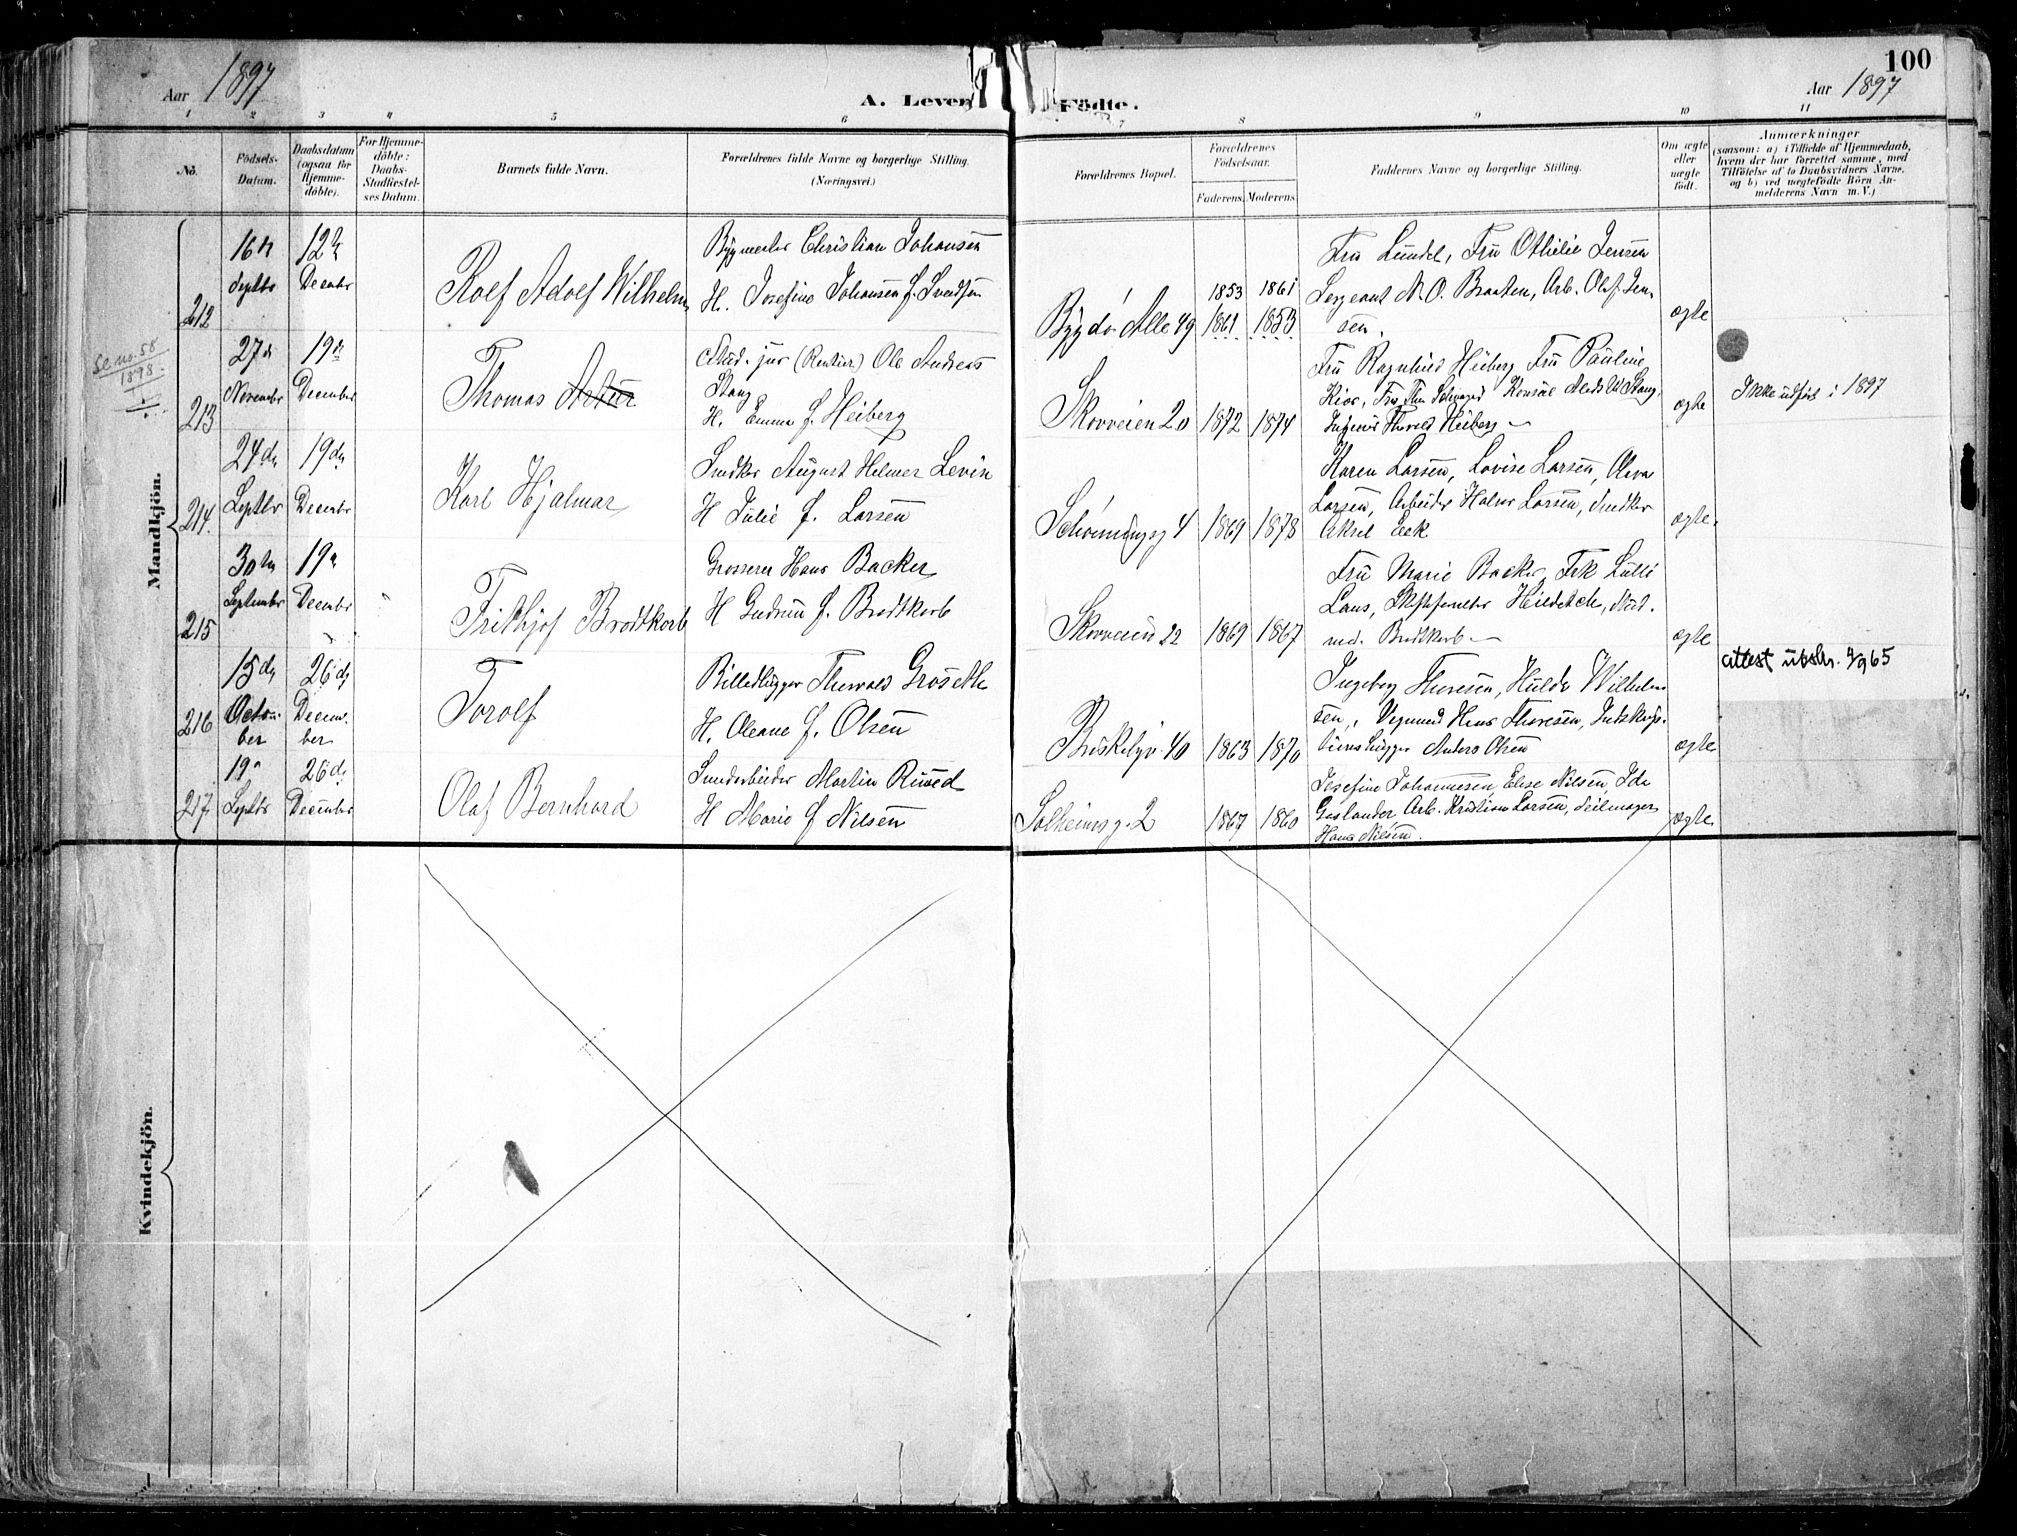 100
Aar 1897
A. Levende Födte.
Aar 1897
1 2 3 4 5 6 7 8 9 10 11
No.
Födsels-
Datum.
Daabsdatum
(ogsaa for
Hjemme-
döbte).
For Hjemme-
döbte:
Daabs-
Stadfæstel-
ses Datum.
Barnets fulde Navn.
Forældrenes fulde Navne og borgerlige Stilling.
(Næringsvei.)
Forældrenes Bopæl.
Forældrenes
Födselsaar.
Faderens. Moderens.
Faddernes Navne og borgerlige Stilling.
Om ægte
eller
uægte
født.
Anmærkninger
(saasom: a) i Tilfælde af Hjemmedaab,
hvem der har forrettet samme, med
Tilföielse af to Daabsvidners Navne,
og b) ved uægtefödte Börn An-
melderens Navn m. V.)
Mandkjön.
212
16
Septbr
12
Decmbr
Rolf Adolf Wilhelm
Bygmester Christian Johansen
H. Josefine Johansen f. Svendsen
Bygdø Alle 49
1853 1861
1861 1853
Fru Lundel, Fru Othilie Jensen
Sergeant N. O. Braaten, Arb. Olaf Jen-
sen.
ægte
Se no. 58
1898.
213
27d
November
19d
December
Thomas Artur
Stud. jur (Rentier) Ole Andreas
Stang
H. Emma f. Heiberg
Skovveien 20
1872 1874
Fru Ragnhild Heiberg Fru Pauline
Kiær, Konsul Mads W. Stang,
Ingeniør Thorvald Heiberg
ægte
Ikke udført i 1897
214
24d
Septbr
19d
Decembr
Karl Hjalmar
Snedker August Helmer Levin
H Julie f. Larsen
Schønningsg 4
1869 1878
Karen Larsen, Lovise Larsen, Olava
Larsen, Arbeider Halvor Larsen, Snedker
Aksel Eek
ægte.
215
30
September
19
Decembr
Frithjof Brodtkorb
Grosserer Hans Backer
H Gudrun f. Brodtkorb
Skovveien 22
1869 1867
Fru Marie Backer, Frk Lulli
Laus, Stud.
med. Brodtkorb
ægte
216
15d
Octo-
ber
26d
Decem-
ber
Torolf
Billedhugger Thorvald Grøseth
H. Oleane f. Olsen
Briskebyv. 40
1863 1870
Ingeborg Thoresen, Hulda Wilhelm
sen, Vognmand Hans Thoresen, Indskrip-
tionshugger Anders Olsen
ægte
attest utstn. 4/9 65
217
19
Septbr
26d
December
Olaf Bernhard
Martin Ruud
H Marie f Nilsen
Solheimsg. 2
1867 1860
Josefine Johannesen, Elise Nilsen, Ida
Goslander, Arb. Kristian Larsen, Seilmager
Hans Nilsen.
ægte
Kvindekjön.